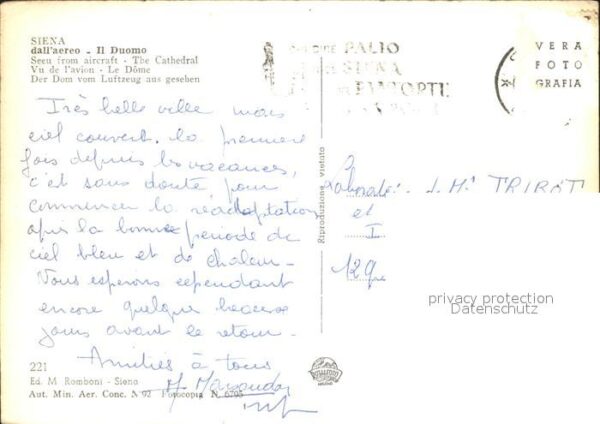 SIENA
dall'aereo - Il Duomo
Seen from aircraft - The Cathedral
Vu de l'avion - Le Dôme
Der Dom vom Luftzeug aus gesehen
PALIO
SIENA
VERA
FOTO
GRAFIA
Très belle ville mais
ciel couvert. la premiere
fois depuis les vacances,
c'est sans doute pour
commencer la réadaptation
après la bonne période de
ciel bleu et de chaleur -
Vous esperons cependant
encore quelques beaux
jours avant le retour -
Amitiés à tous
Riproduzione vietata
et
privacy protection
Datenschutz
221
Ed. M. Romboni - Siena
Aut. Min. Aer. Conc. N 92 Fotocopia N. 6705